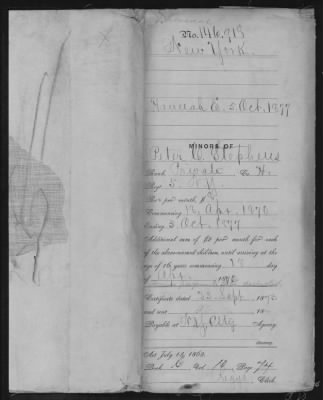 No. 146,913
New York.
Hannah E. 5. Oct. 1877
MINORS OF
Peter C. Stephens
Rank Private Co. H.
Regt 5. N.Y.
Rate per month, $8
Commencing 12 Apr. 1870
Ending 5 Oct. 1877
Additional sum of $2 per month for each
of the above-named children, until arriving at the
age of 16 years commencing 12 day
of Apr. 1870
Certificate dated 22 Sept 1870
and sent 18
Payable at N.Y. City Agency.
Act July 14, 1862.
Book Vol. Page 74
Clerk.